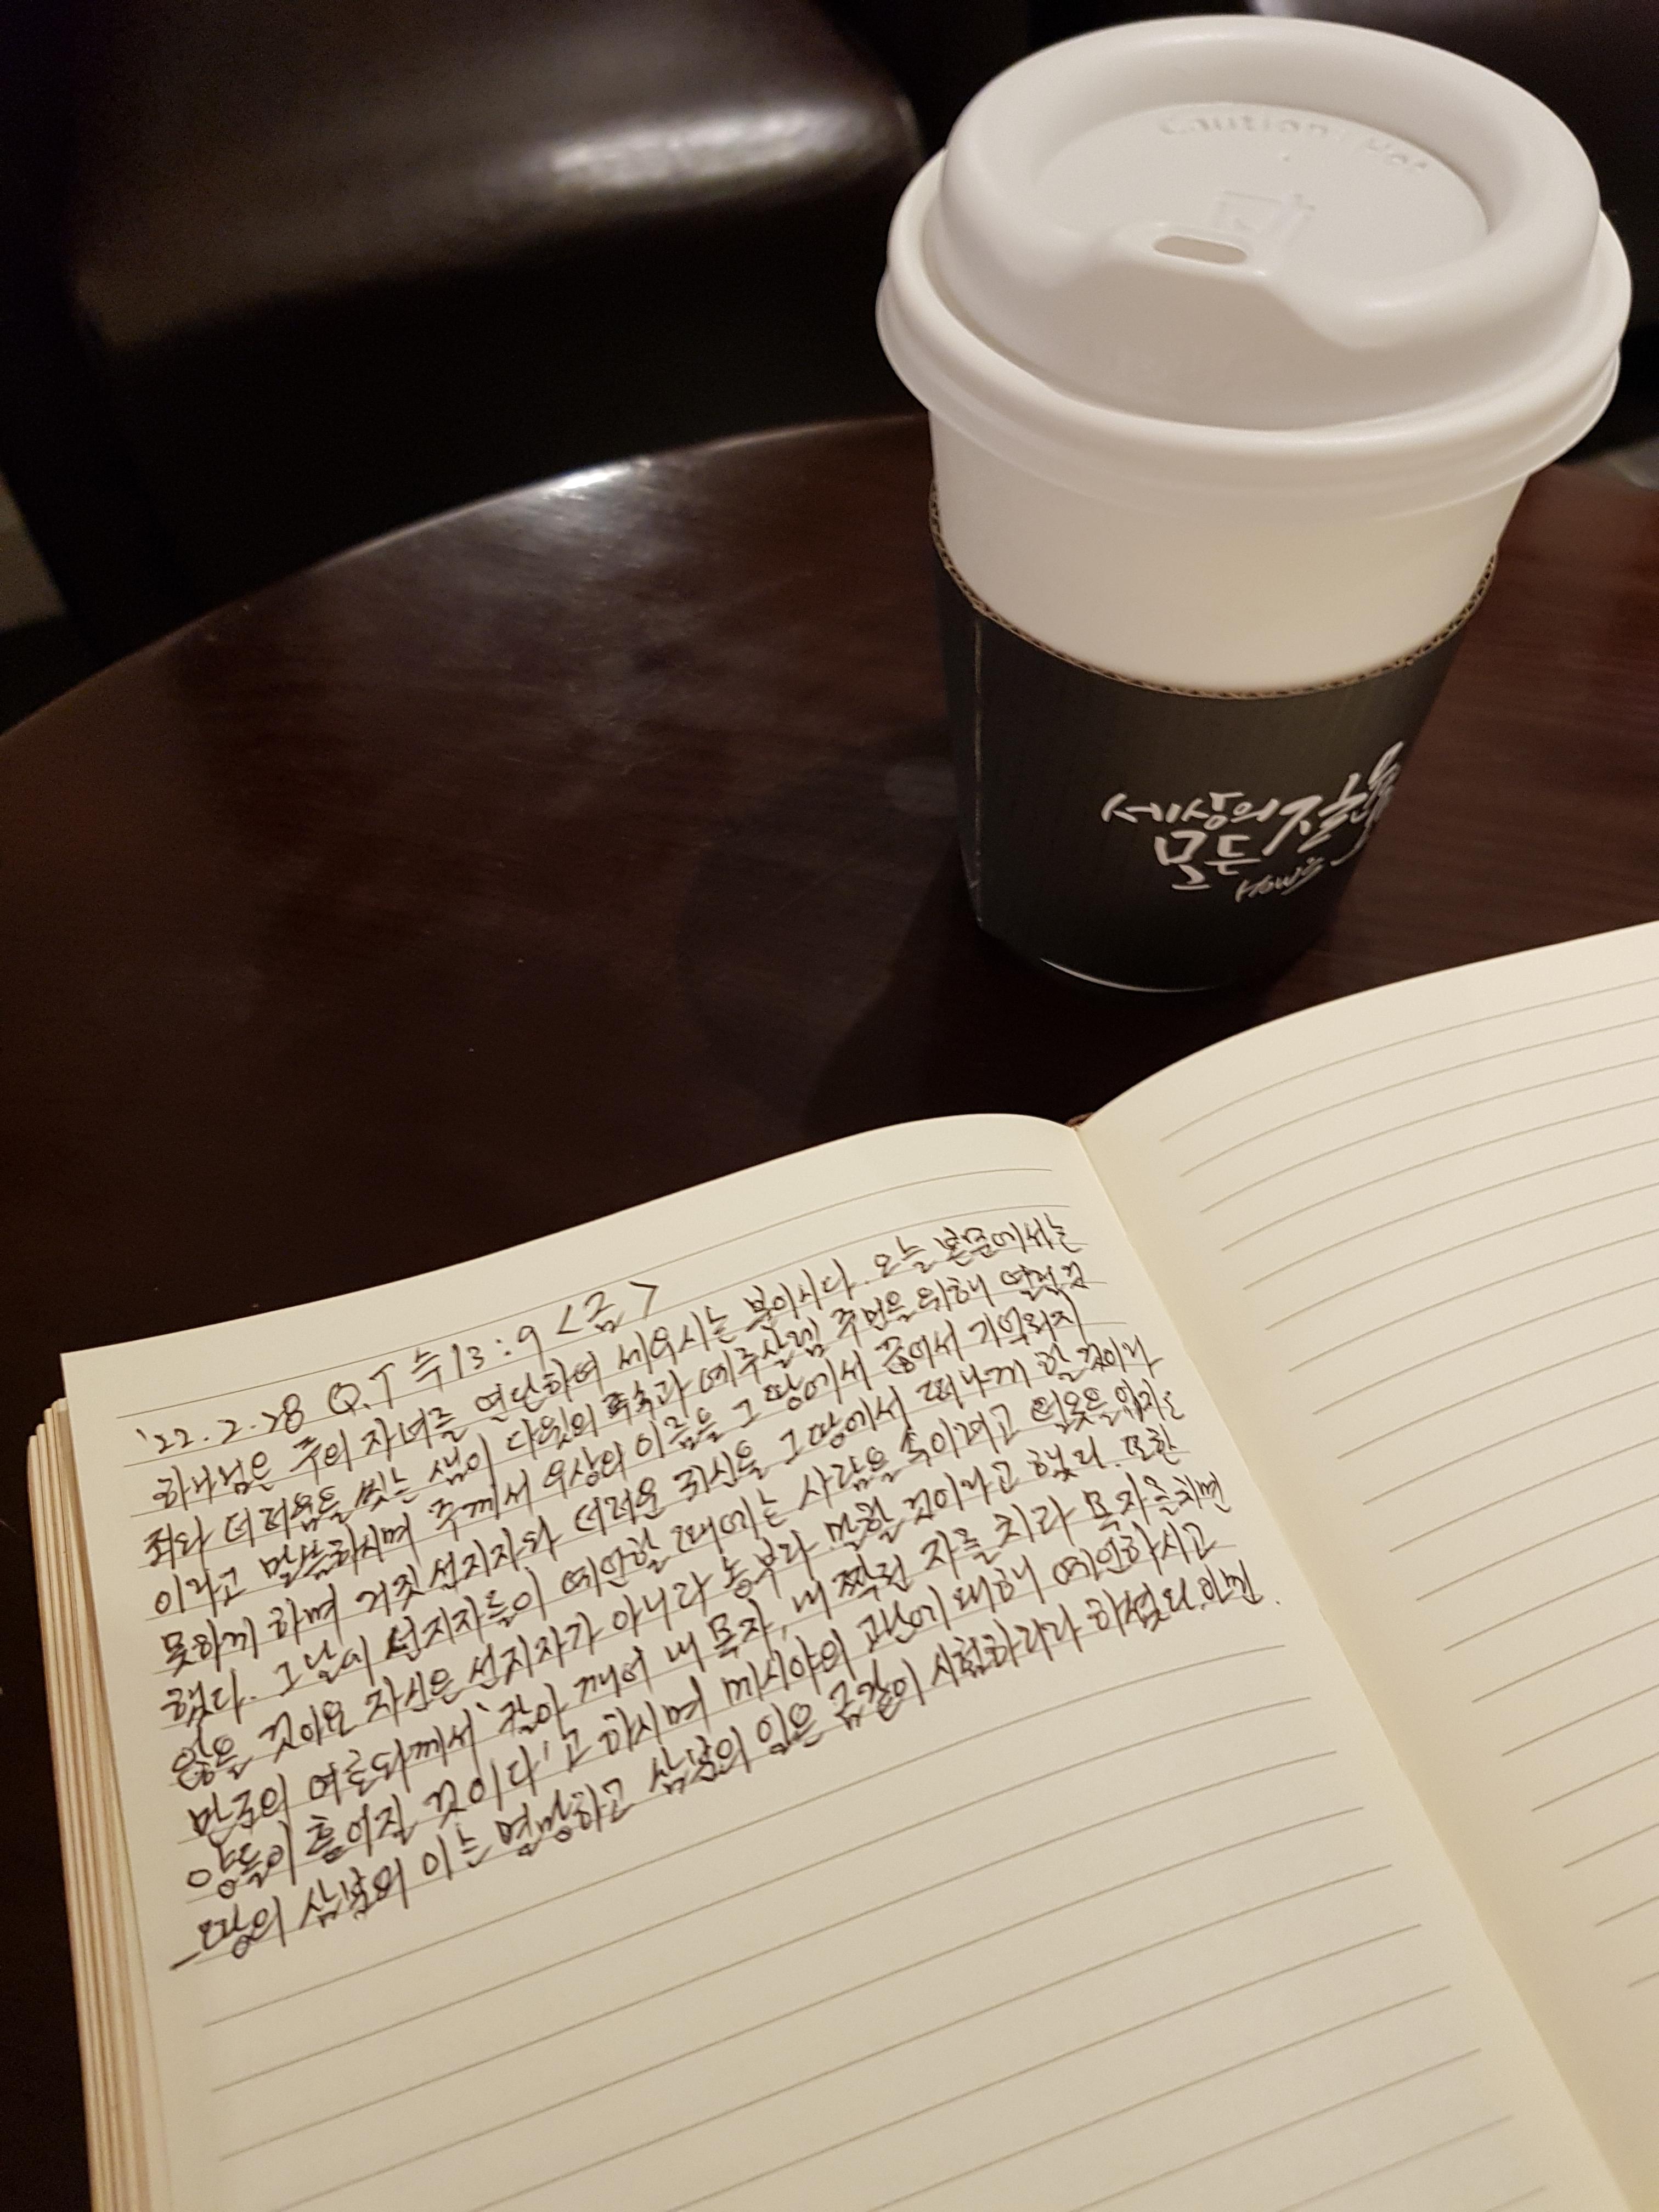 Caution Hot
세상의
모든
How's
'22.2.28 Q.T 슥13:9 <금>
하나님은 주의 자녀를 연단하여 세우시는 분이시다. 오늘 본문에서는
죄와 더러움을 씻는 샘이 다윗의 족속과 예루살렘 주민을 위해 열린것
이라고 말씀하시며 주께서 우상의 이름을 그 땅에서 끊어서 기억되지
못하게 하며 거짓 선지자와 더러운 귀신을 그 땅에서 떠나게 할 것이라
했다. 그날에 선지자들이 예언할 때에는 사람을 속이려고 털옷을 입지도
않을 것이요 자신은 선지자가 아니라 농부라 말할 것이라고 했다. 또한
만군의 여호와께서 '칼아 깨어 내 목자, 내 짝된 자를 치라 목자를 치면
양들이 흩어질 것이다'고 하시며 메시야의 고난에 대해 예언하시고
땅의 삼분의 이는 멸망하고 삼분의 일은 금같이 시험하리라 하셨다.